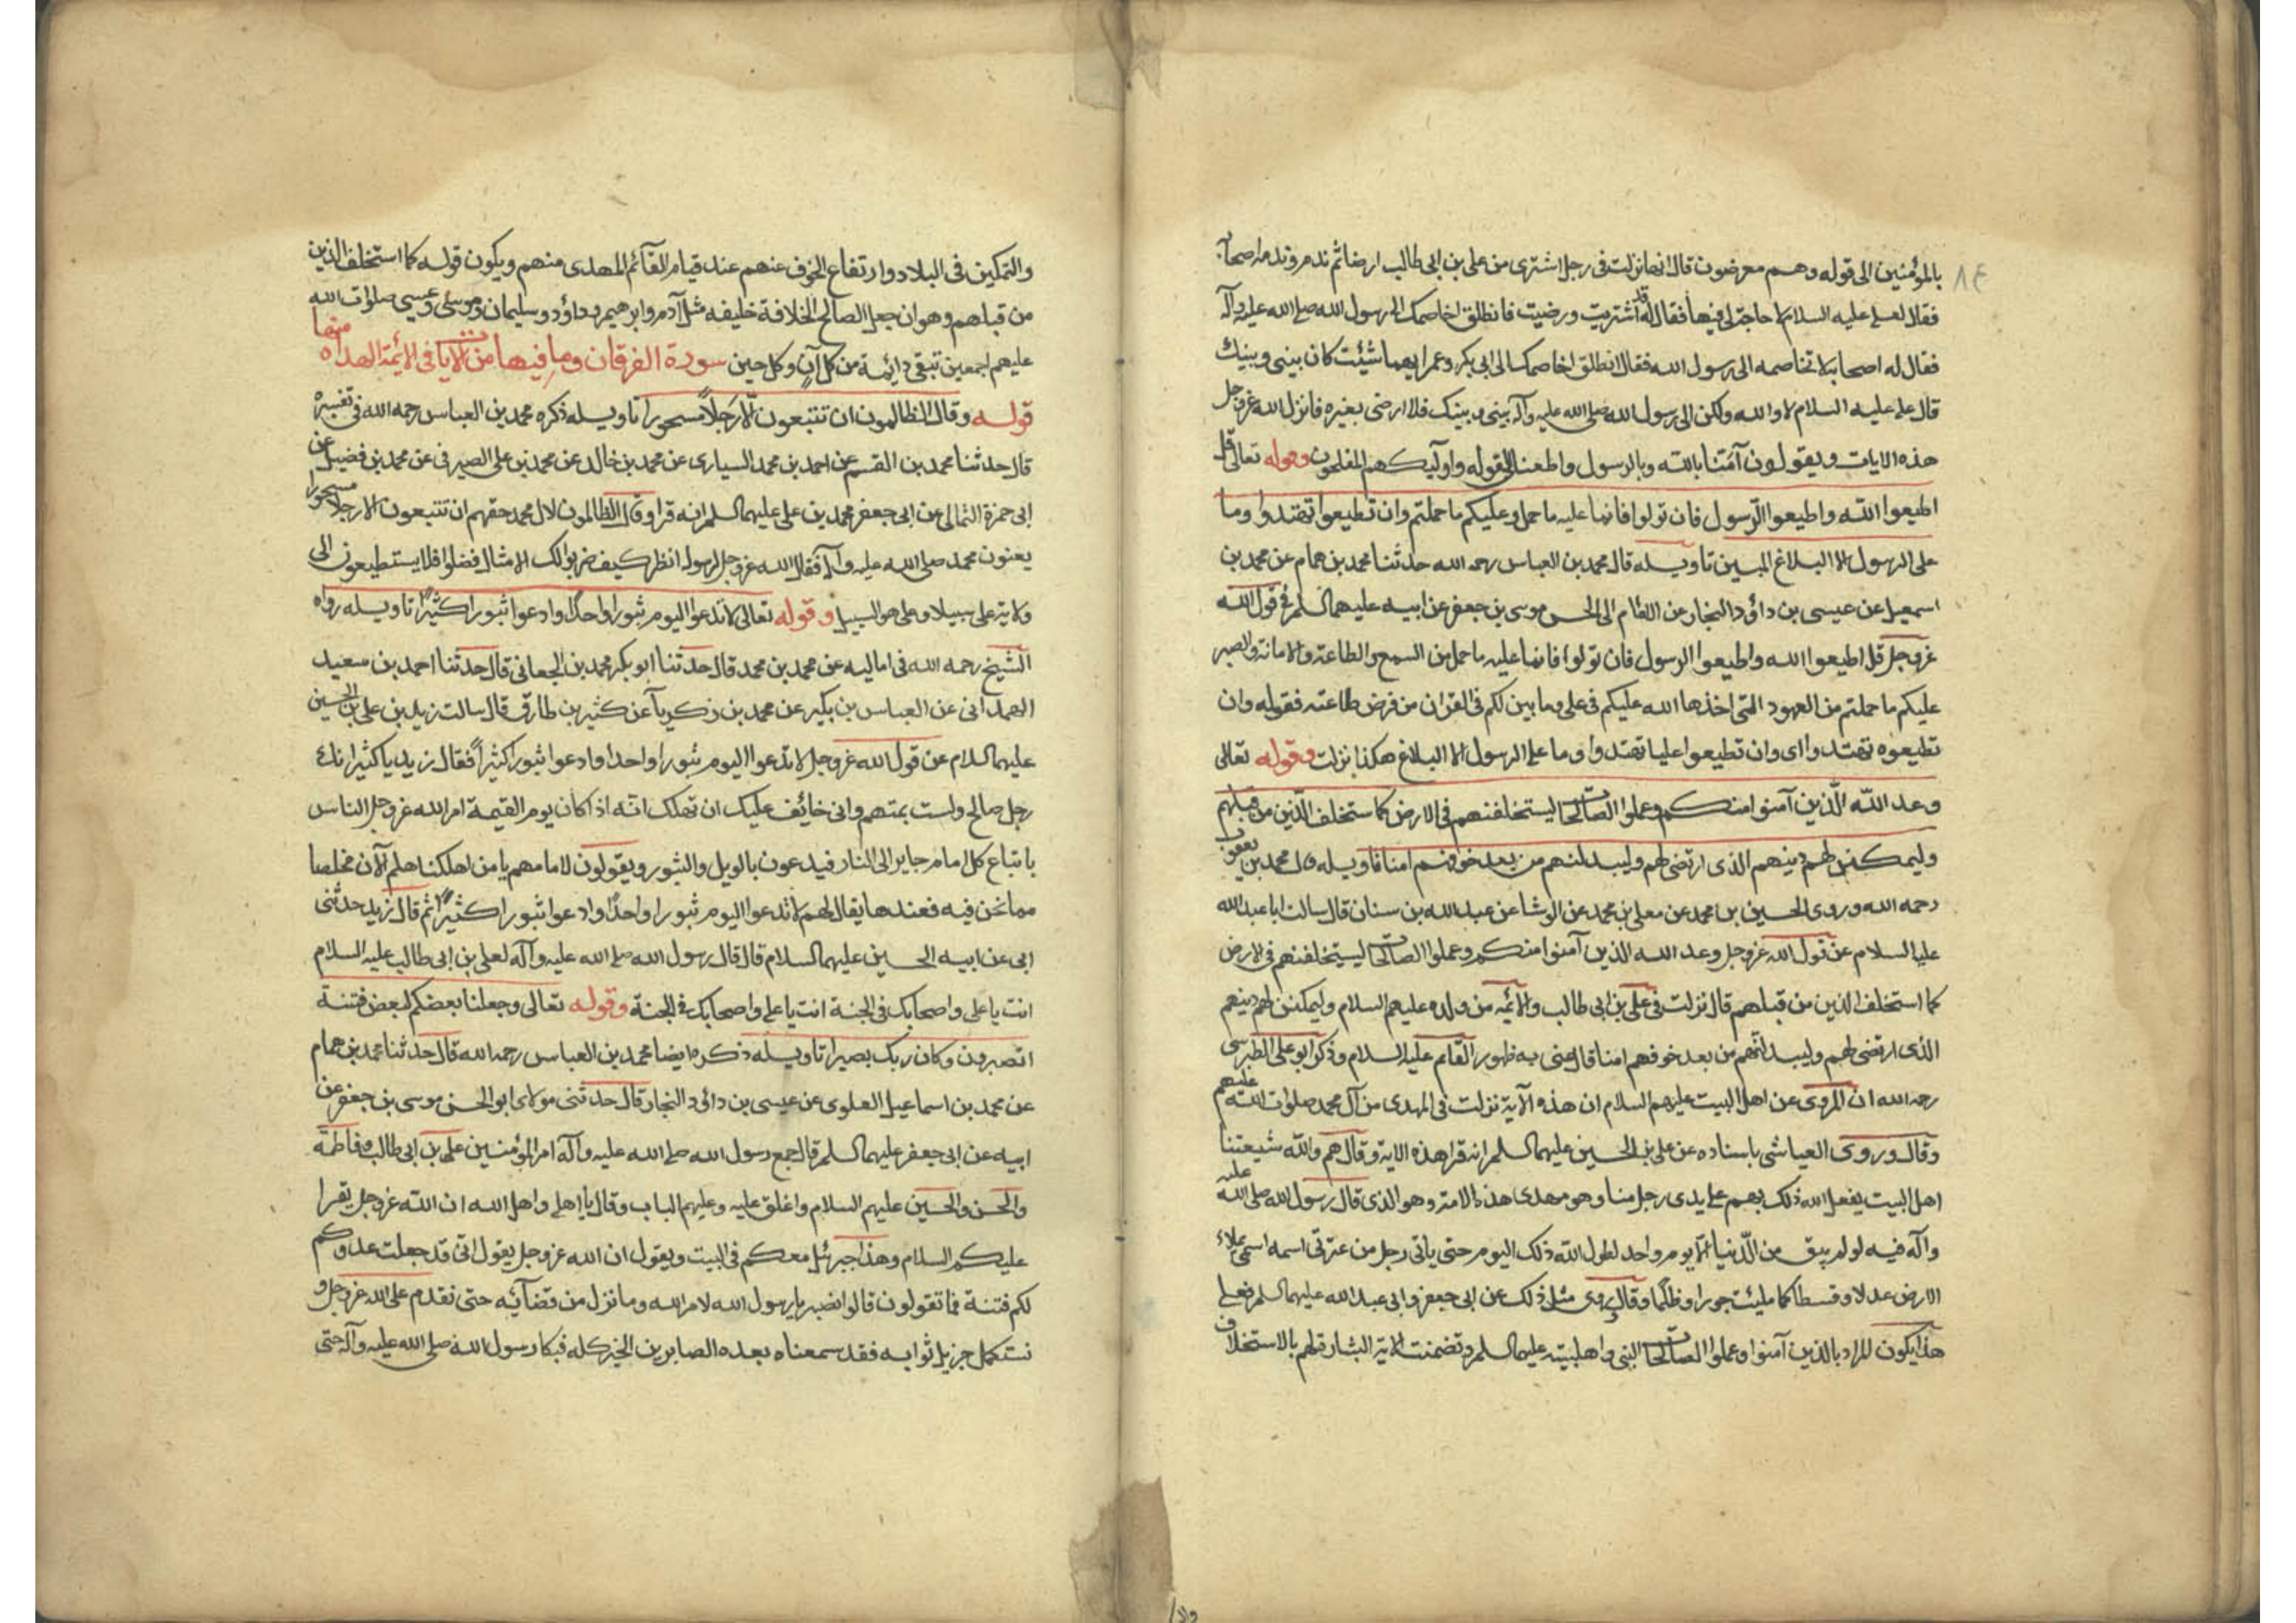 ٨٤
بالمؤمنين الى قوله وهم معرضون قال انها نزلت فى رجل اشترى من على بن ابى طالب ارضا ثم ندم وندمه اصحابه
فقال لعلى عليه السلام لا حاجة لى فيها فقال له قد اشتريت ورضيت فانطلق اخاصمك الى رسول الله صلى الله عليه وآله
فقال له اصحابه لا تخاصمه الى رسول الله فقال انطلق اخاصمك الى ابى بكر وعمر ايهما شئت كان بينى وبينك
قال على عليه السلام لا والله ولكن الى رسول الله صلى الله عليه وآله بينى وبينك فلا ارضى بغيره فانزل الله عز وجل
هذه الايات ويقولون آمنا بالله وبالرسول واطعنا الى قوله واولٓيك هم المفلحون وقوله تعالى قل
اطيعوا الله واطيعوا الرسول فان تولوا فانما عليه ما حمل وعليكم ما حملتم وان تطيعوا تهتدوا وما
على الرسول الا البلاغ المبين تاويله قال محمد بن العباس رحمه الله حدثنا محمد بن همام عن محمد بن
اسمعيل عن عيسى بن داؤد النجار عن الامام ابى الحسن موسى بن جعفر عن ابيه عليهما السلم فى قول الله
عز وجل قل اطيعوا الله واطيعوا الرسول فان تولوا فانما عليه ما حمل من السمع والطاعة والامانة والصبر
عليكم ما حملتم من العهود التى اخذها الله عليكم فى على وما بين لكم فى القرآن من فرض طاعته فقوله وان
تطيعوه تهتدوا اى وان تطيعوا عليا تهتدوا وما على الرسول الا البلاغ هكذا نزلت وقوله تعالى
وعد الله الذين آمنوا منكم وعملوا الصالحات ليستخلفنهم فى الارض كما استخلف الذين من قبلهم
وليمكنن لهم دينهم الذى ارتضى لهم وليبدلنهم من بعد خوفهم امنا تاويله قال محمد بن يعقوب
رحمه الله وروى الحسين بن محمد عن معلى بن محمد عن الوشا عن عبد الله بن سنان قال سالت ابا عبد الله
عليه السلام عن قول الله عز وجل وعد الله الذين آمنوا منكم وعملوا الصالحات ليستخلفنهم فى الارض
كما استخلف الذين من قبلهم قال نزلت فى على بن ابى طالب والائمه من ولده عليهم السلام وليمكنن لهم دينهم
الذى ارتضى لهم وليبدلنهم من بعد خوفهم امنا قال عنى به ظهور القائم عليه السلام وذكر ابو على الطبرسى
رحمه الله ان المروى عن اهل البيت عليهم السلام ان هذه الآية نزلت فى المهدى من آل محمد صلوات الله عليهم
وقال وروى العياشى باسناده عن على بن الحسين عليهما السلم انه قرا هذه الاية وقال هم والله شيعتنا
اهل البيت يفعل الله ذلك بهم على يدى رجل منا وهو مهدى هذه الامة وهو الذى قال رسول الله صلى الله عليه
وآله فيه لو لم يبق من الدنيا الا يوم واحد لطول الله ذلك اليوم حتى ياتى رجل من عترتى اسمه اسمى يملاء
الارض عدلا وقسطا كما مليئت جورا وظلما وقال روى مثل ذلك عن ابى جعفر وابى عبد الله عليهما السلم فعلى
هذا يكون المراد بالذين آمنوا وعملوا الصالحات النبى واهل بيته عليهم السلم وتضمنت الاية البشارة لهم بالاستخلاف
والتمكين فى البلاد وارتفاع الخوف عنهم عند قيام القآئم المهدى منهم ويكون قوله كما استخلف الذين
من قبلهم وهو ان جعل الصالح للخلافة خليفه مثل آدم وابرهيم وداؤد وسليمان وموسى وعيسى صلوات الله
عليهم اجمعين تبقى دائمة من كل آن وكل حين سورة الفرقان وما فيها من الايات فى الائمة الهداه منها
قوله وقال الظالمون ان تتبعون الا رجلا مسحورا تاويله ذكره محمد بن العباس رحمه الله فى تفسيره
قال حدثنا محمد بن القسم عن احمد بن محمد السيارى عن محمد بن خالد عن محمد بن على الصيرفى عن محمد بن فضيل عن
ابى حمزة الثمالى عن ابى جعفر محمد بن على عليهما السلم انه قرا وقال الظالمون لال محمد حقهم ان تتبعون الا رجلا مسحورا
يعنون محمد صلى الله عليه وآله فقال الله عز وجل لرسوله انظر كيف ضربوا لك الامثال فضلوا فلا يستطيعون الى
ولاية على سبيلا وعلى هو السبيل وقوله تعالى لا تدعوا اليوم ثبورا واحدا وادعوا ثبورا كثيرا تاويله رواه
الشيخ رحمه الله فى اماليه عن محمد بن محمد قال حدثنا ابو بكر محمد بن الجعانى قال حدثنا احمد بن سعيد
الهمدانى عن العباس بن بكير عن محمد بن زكريآ عن كثير بن طارق قال سالت زيد بن على بن الحسين
عليهما السلام عن قول الله عز وجل لا تدعوا اليوم ثبورا واحدا وادعوا ثبورا كثيرا فقال زيد يا كثير انك
رجل صالح ولست بمتهم وانى خائف عليك ان تهلك انه اذا كان يوم القيمة امر الله عز وجل الناس
باتباع كل امام جاير الى النار فيدعون بالويل والثبور ويقولون لامامهم يا من اهلكنا هلم الآن فخلصنا
مما نحن فيه فعندها يقال لهم لا تدعوا اليوم ثبورا واحدا وادعوا ثبورا كثيرا ثم قال زيد حدثنى
ابى عن ابيه الحسين عليهما السلام قال قال رسول الله صلى الله عليه وآله لعلى بن ابى طالب عليه السلام
انت يا على واصحابك فى الجنة انت يا على واصحابك فى الجنة وقوله تعالى وجعلنا بعضكم لبعض فتنة
اتصبرون وكان ربك بصيرا تاويله ذكره ايضا محمد بن العباس رحمه الله قال حدثنا محمد بن همام
عن محمد بن اسماعيل العلوى عن عيسى بن دائود النجار قال حدثنى مولاى ابو الحسن موسى بن جعفر عن
ابيه عن ابى جعفر عليهما السلم قال جمع رسول الله صلى الله عليه وآله امر المؤمنين على بن ابى طالب وفاطمة
والحسن والحسين عليهم السلام واغلق عليه وعليهم الباب وقال يا اهلى واهل الله ان الله عز وجل يقرا
عليكم السلام وهذا جبرئيل معكم فى البيت ويقول ان الله عز وجل يقول انى قد جعلت عدوكم
لكم فتنة فما تقولون قالوا نصبر يا رسول الله لامر الله وما نزل من قضآئه حتى نقدم على الله عز وجل و
نستكمل جزيل ثوابه فقد سمعناه يعده الصابرين الخير كله فبكا رسول الله صلى الله عليه وآله حتى